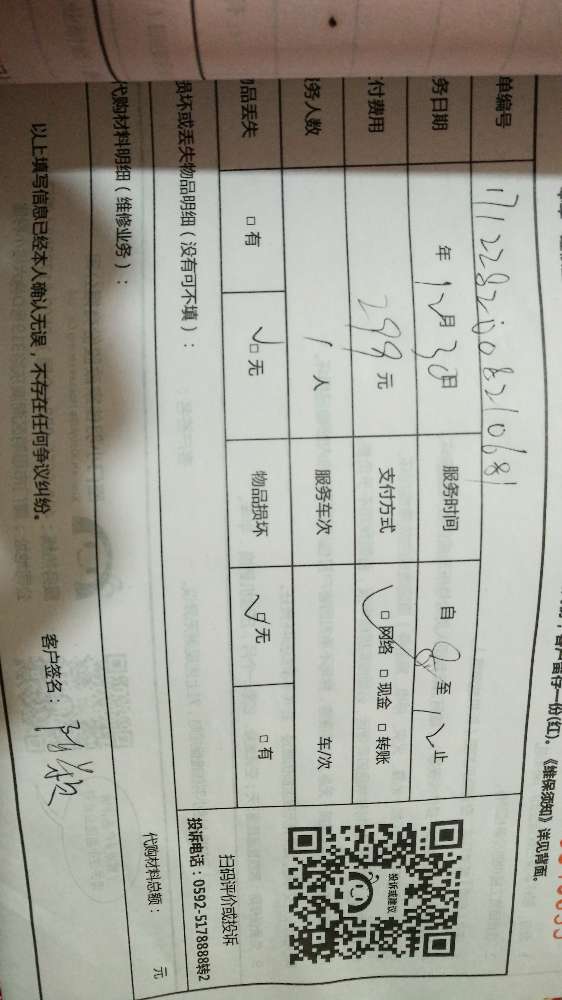 客户留存一份(红)。《维保须知》详见背面。
单编号 1712282008210681
务日期 年 12月 30日 服务时间 自 8 至 12 止
付费用 299 元 支付方式 ☑网络 □现金 □转账
务人数 1 人 服务车次 车/次
物品丢失 □有 ☑无 物品损坏 ☑无 □有
损坏或丢失物品明细（没有可不填）：
代购材料明细（维修业务）：
代购材料总额： 元
投诉或建议
扫码评价或投诉
投诉电话：0592-5178888转2
以上填写信息已经本人确认无误，不存在任何争议纠纷。 客户签名：